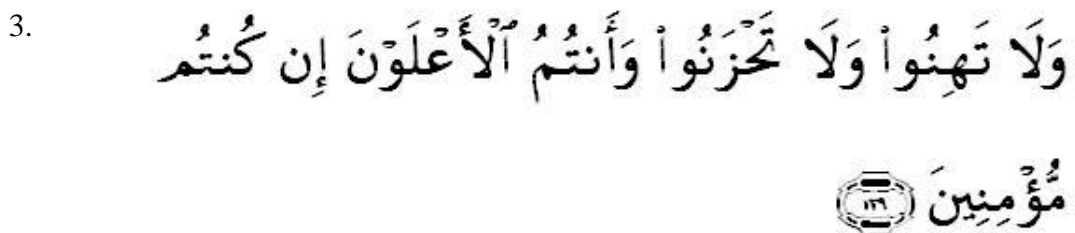 3. وَلَا تَهِنُوا۟ وَلَا تَحْزَنُوا۟ وَأَنتُمُ ٱلْأَعْلَوْنَ إِن كُنتُم
مُّؤْمِنِينَ ١٣٩